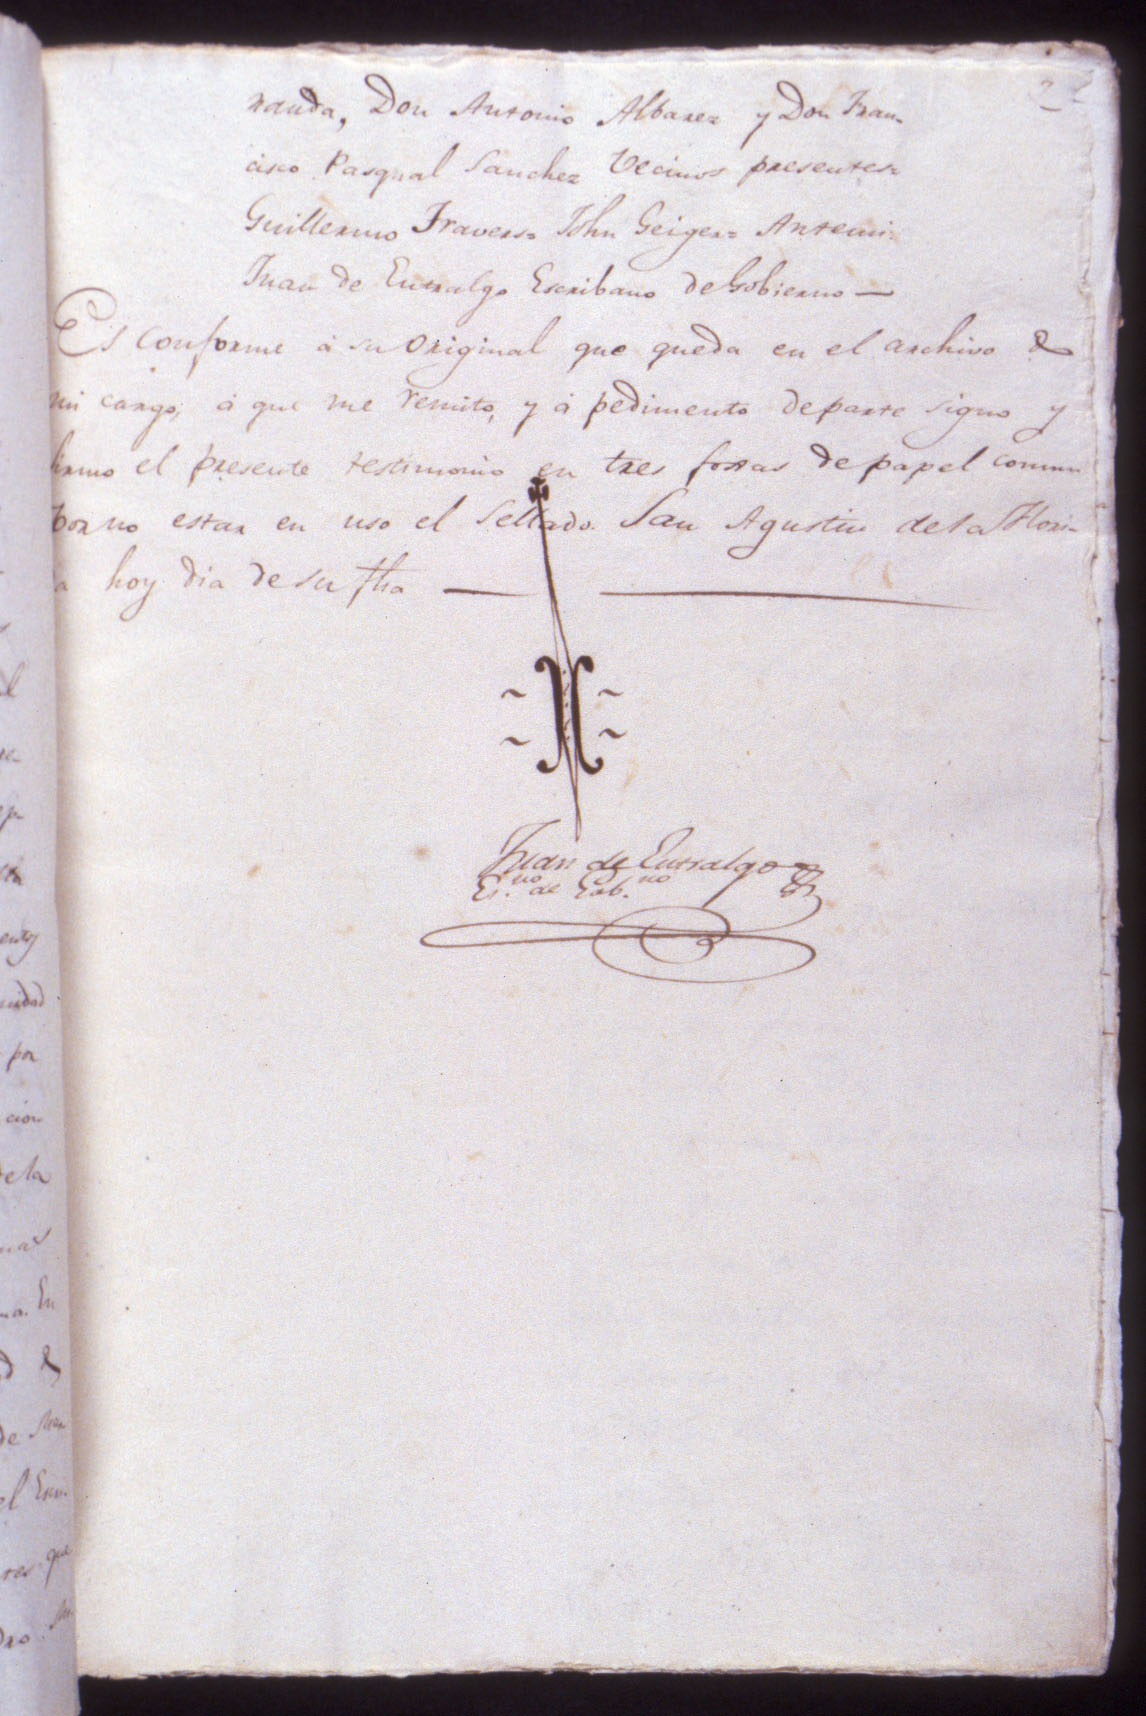 2
randa, Don Antonio Albarez y Don Fran-
cisco Pasqual Sanchez Vecinos presentes=
Guillermo Travers= John Geiger= Antemi=
Juan de Entralgo Escribano de Gobierno—
Es conforme á su original que queda en el archivo de
mi cargo, á que me remito, y á pedimento de parte signo y
firmo el presente testimonio en tres foxas de papel comun
por no estar en uso el Sellado. San Agustin de la Flori-
da hoy dia de su fha
Juan de Entralgo
Es.no de Gob.no
l
por
cion
de la
na. En
de
el Escri-
res que